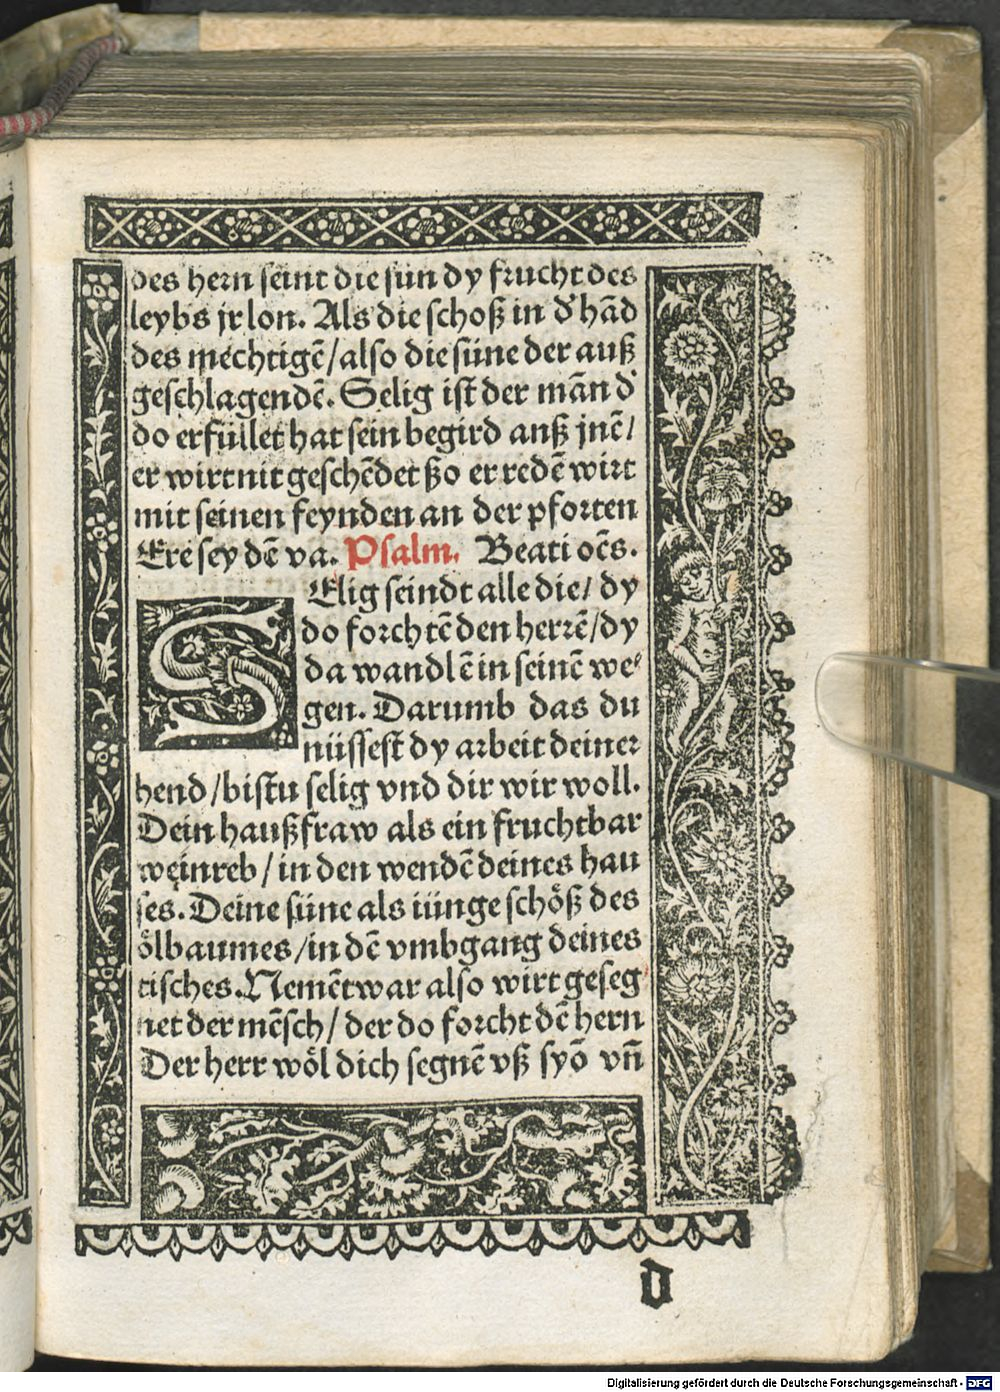 des hern seint die sün dy frucht des
leybs jr lon. Als die schoß in d' hãd
des mechtigẽ/also die süne der auß
geschlagendẽ. Selig ist der mãn d'
do erfüllet hat sein begird auß jnẽ/
er wirt nit geschẽdet ßo er redẽ wirt
mit seinen feynden an der pforten
Ere sey dẽ va. Psalm. Beati oẽs.
SElig seindt alle die/ dy
do forchtẽ den herrẽ/dy
da wandlẽ in seinẽ we⸗
gen. Darumb das du
nüssest dy arbeit deiner
hend/bistu selig vnd dir wir woll.
Dein haußfraw als ein fruchtbar
weinreb/in den wendẽ deines hau
ses. Deine süne als iünge schöß des
ölbaumes/in dẽ vmbgang deines
tisches. Nemẽt war also wirt geseg
net der mẽsch/ der do forcht dẽ hern
Der herr wöl dich segnẽ vß syõ vñ
d
Digitalisierung gefördert durch die Deutsche Forschungsgemeinschaft - DFG